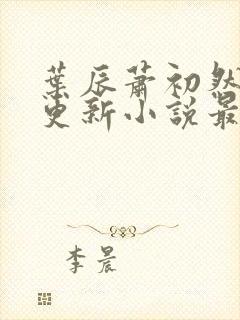 葉辰蕭初然
更新小說最
李晨